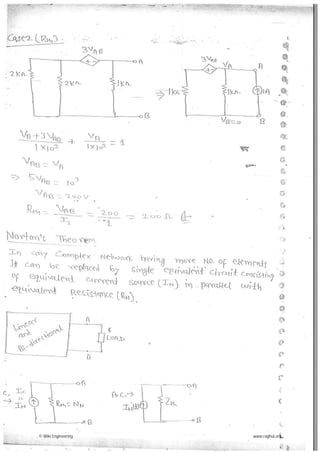 Case2 (RTH)
3VAB
A
2kΩ
2kΩ
1kΩ
B
3VAB
VA
A
1kΩ
1kΩ
1A
VB=0
B
VA+3VAB / 1×10³ + VA / 1×10³ = 1
VAB = VA
⇒ 5VAB = 10³
VAB = 200V
RTH = VAB / I1 = 200 / 1 = 200Ω
Norton's Theorem
In any Complex Network having more No. of elements
It can be replaced by single equivalent circuit consisting
of equivalent current source (IN) in parallel with
equivalent Resistance (RN).
Linear
and
Bi-directional
A
LOAD
B
A
IN
B
A.C.→
A
ZN
B